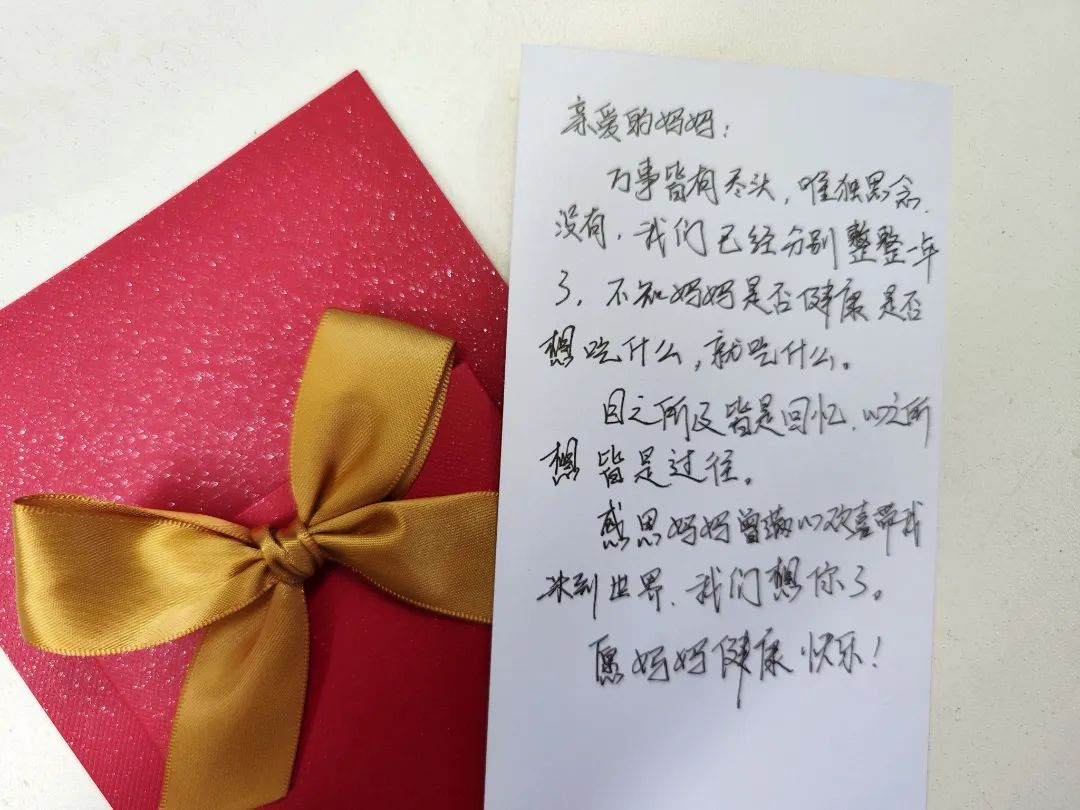 亲爱的妈妈：
万事皆有尽头，唯独思念
没有，我们已经分别整整一年
了，不知妈妈是否健康是否
想吃什么，就吃什么。
目之所及皆是回忆，心之所
想皆是过往。
感恩妈妈曾满心欢喜带我
来到世界，我们想你了。
愿妈妈健康快乐！